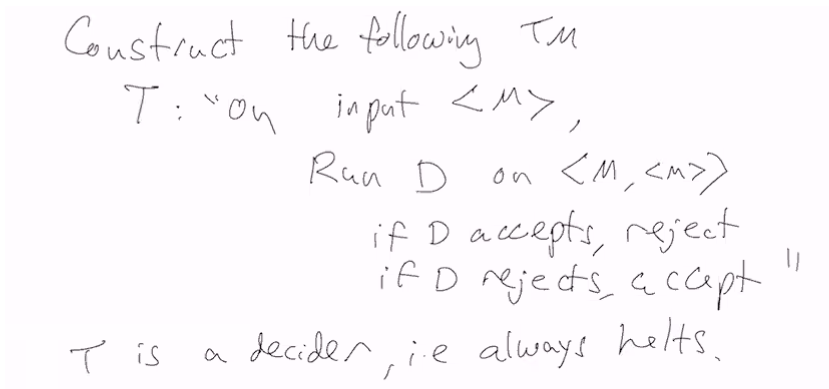 Construct the following TM
T: "On input <M>,
Run D on <M, <M>>
if D accepts, reject
if D rejects, accept "
T is a decider, i.e always halts.